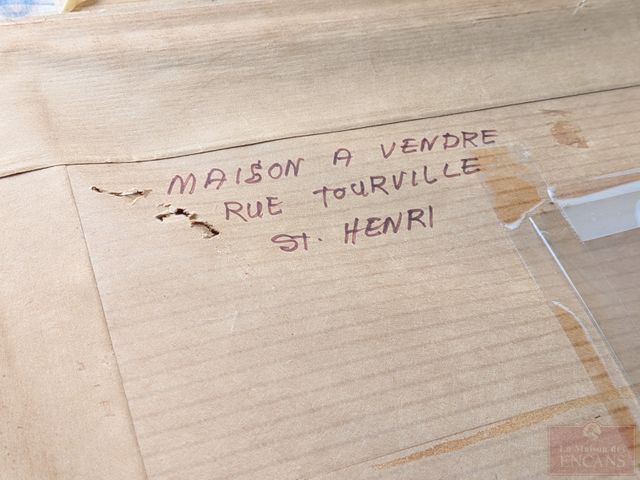 MAISON A VENDRE
RUE TOURVILLE
St. HENRI
La Maison des
ENCANS